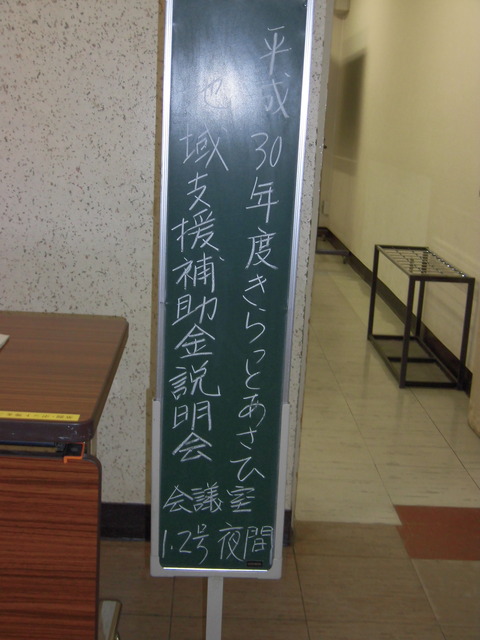 平成30年度きらっとあさひ
地域支援補助金説明会
会議室
1.2号夜間